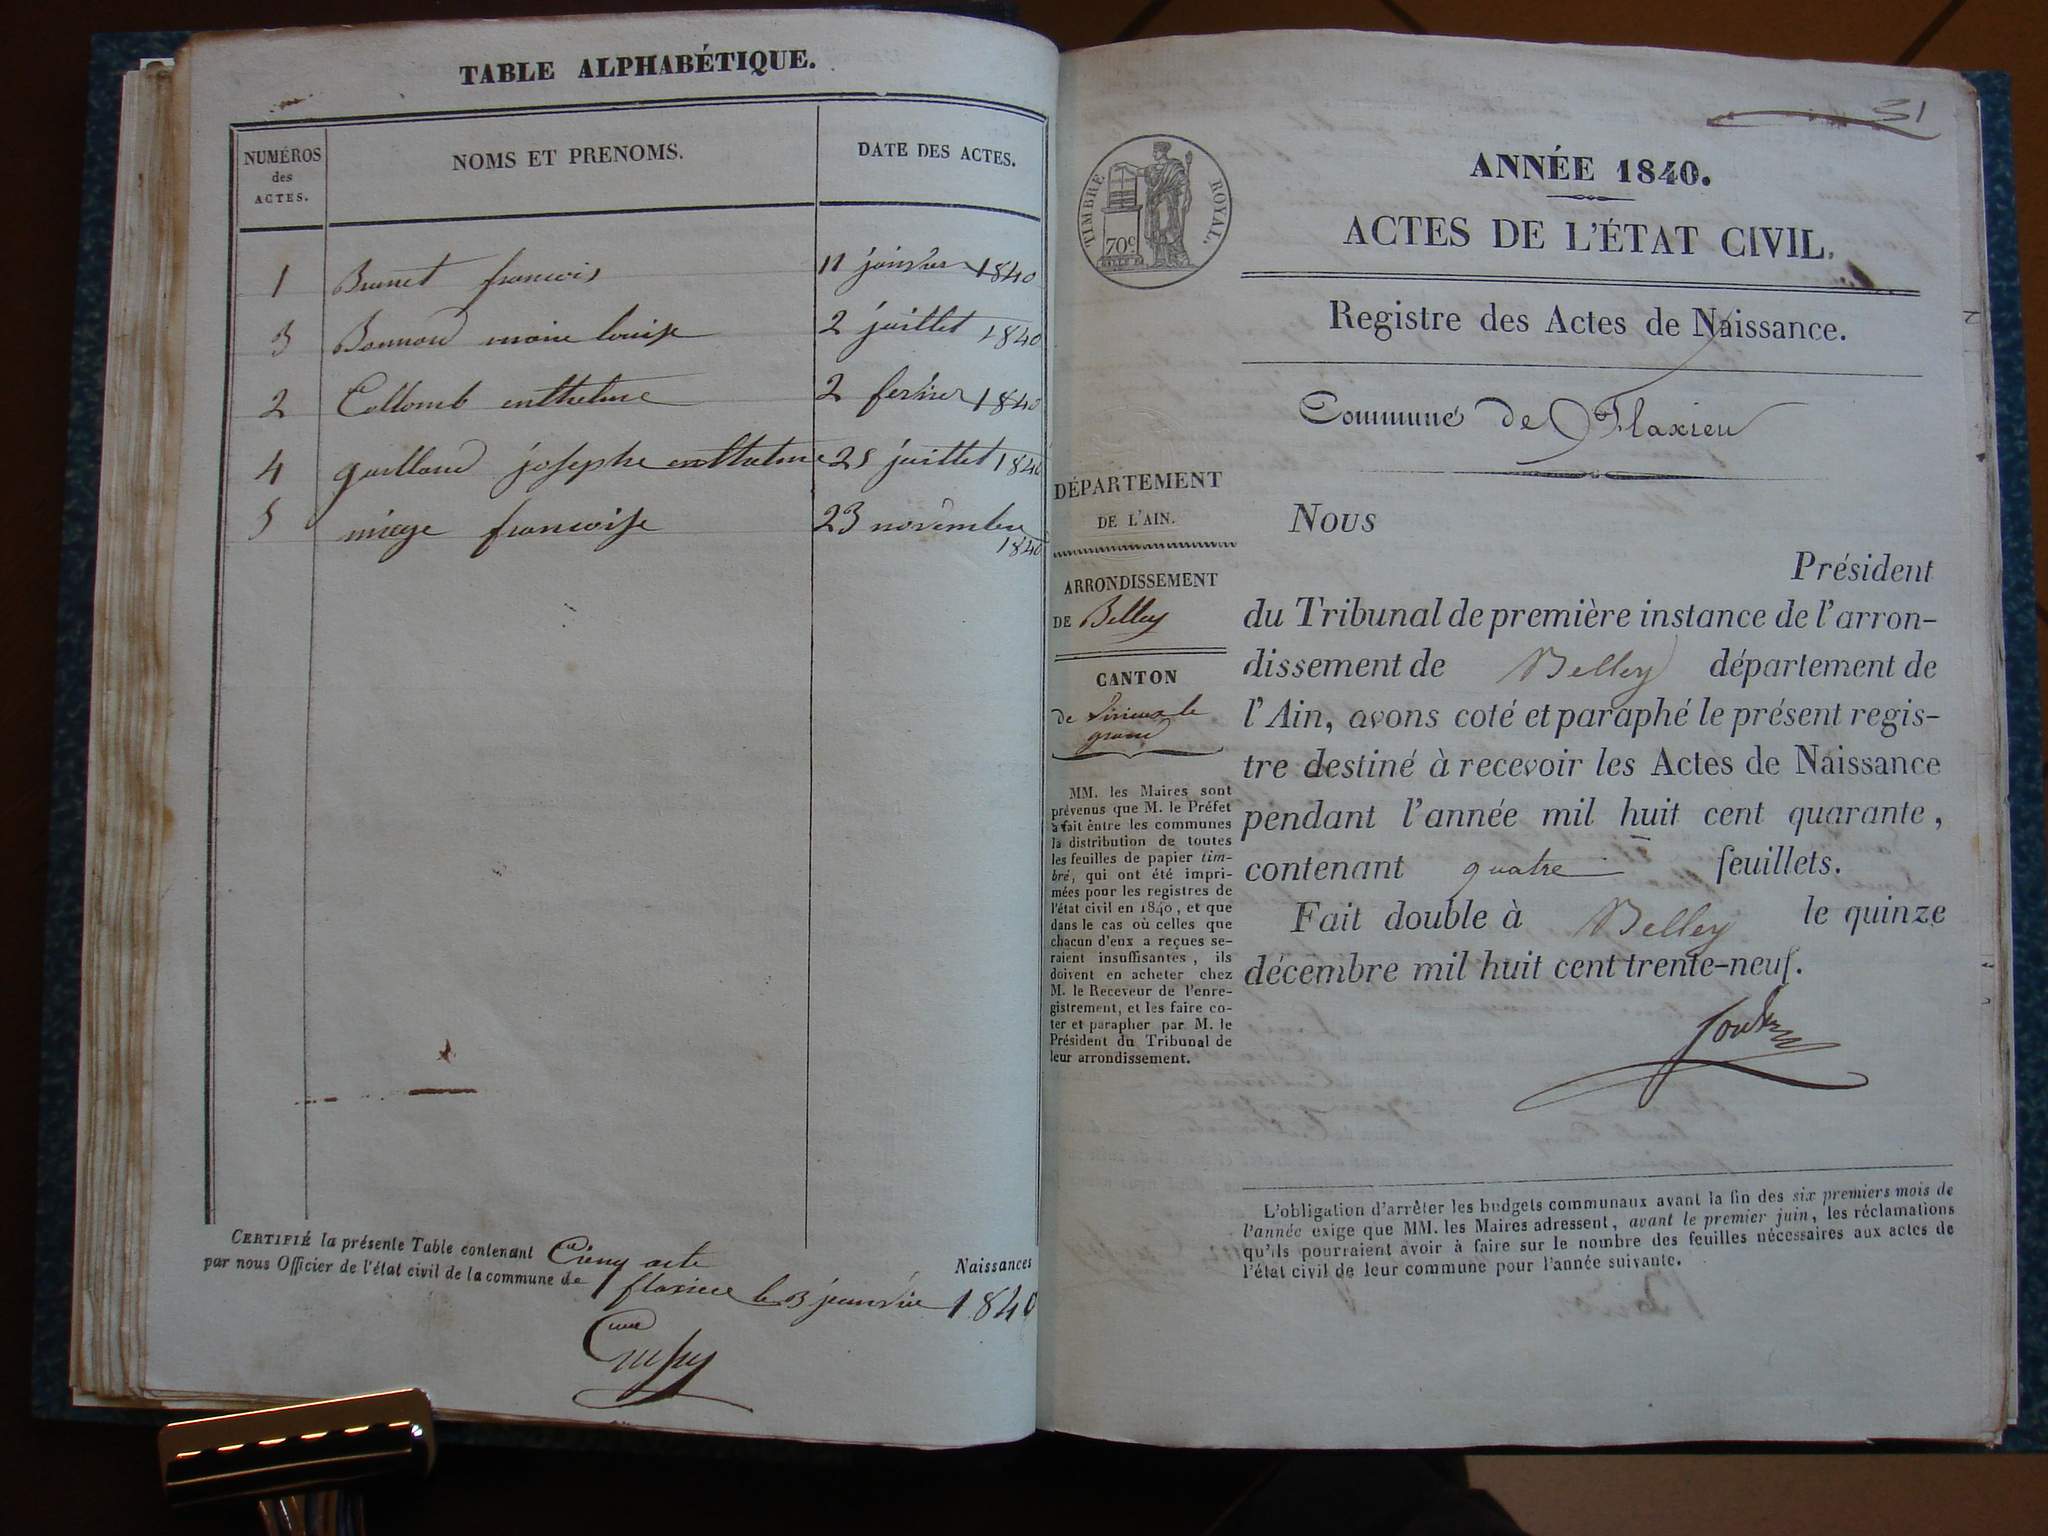 TABLE ALPHABÉTIQUE.
NUMÉROS
des
ACTES.
NOMS ET PRENOMS.
DATE DES ACTES.
1 Brunet francois 11 janvier 1840
3 Bonnard marie louise 2 juillet 1840
2 Collomb 2 fevrier 1840
4 gaillard josephe 25 juillet 1840
5 miege francoise 23 novembre
1840
CERTIFIÉ la présente Table contenant Cinq acte Naissances
par nous Officier de l'état civil de la commune de flaxieu le 3 janvier 1840
31
TIMBRE ROYAL.
70c
ANNÉE 1840.
ACTES DE L'ÉTAT CIVIL.
Registre des Actes de Naissance.
Commune de Flaxieu
DÉPARTEMENT
DE L'AIN.
ARRONDISSEMENT
DE Belley
CANTON
de Virieux le
grand
MM. les Maires sont
prévenus que M. le Préfet
a fait entre les communes
la distribution de toutes
les feuilles de papier tim-
bré, qui ont été impri-
mées pour les registres de
l'état civil en 1840, et que
dans le cas où celles que
chacun d'eux a reçues se-
raient insuffisantes, ils
doivent en acheter chez
M. le Receveur de l'enre-
gistrement, et les faire co-
ter et parapher par M. le
Président du Tribunal de
leur arrondissement.
Nous
Président
du Tribunal de première instance de l'arron-
dissement de Belley département de
l'Ain, avons coté et paraphé le présent regis-
tre destiné à recevoir les Actes de Naissance
pendant l'année mil huit cent quarante,
contenant quatre feuillets.
Fait double à Belley le quinze
décembre mil huit cent trente-neuf.
L'obligation d'arrêter les budgets communaux avant la fin des six premiers mois de
l'année exige que MM. les Maires adressent, avant le premier juin, les réclamations
qu'ils pourraient avoir à faire sur le nombre des feuilles nécessaires aux actes de
l'état civil de leur commune pour l'année suivante.